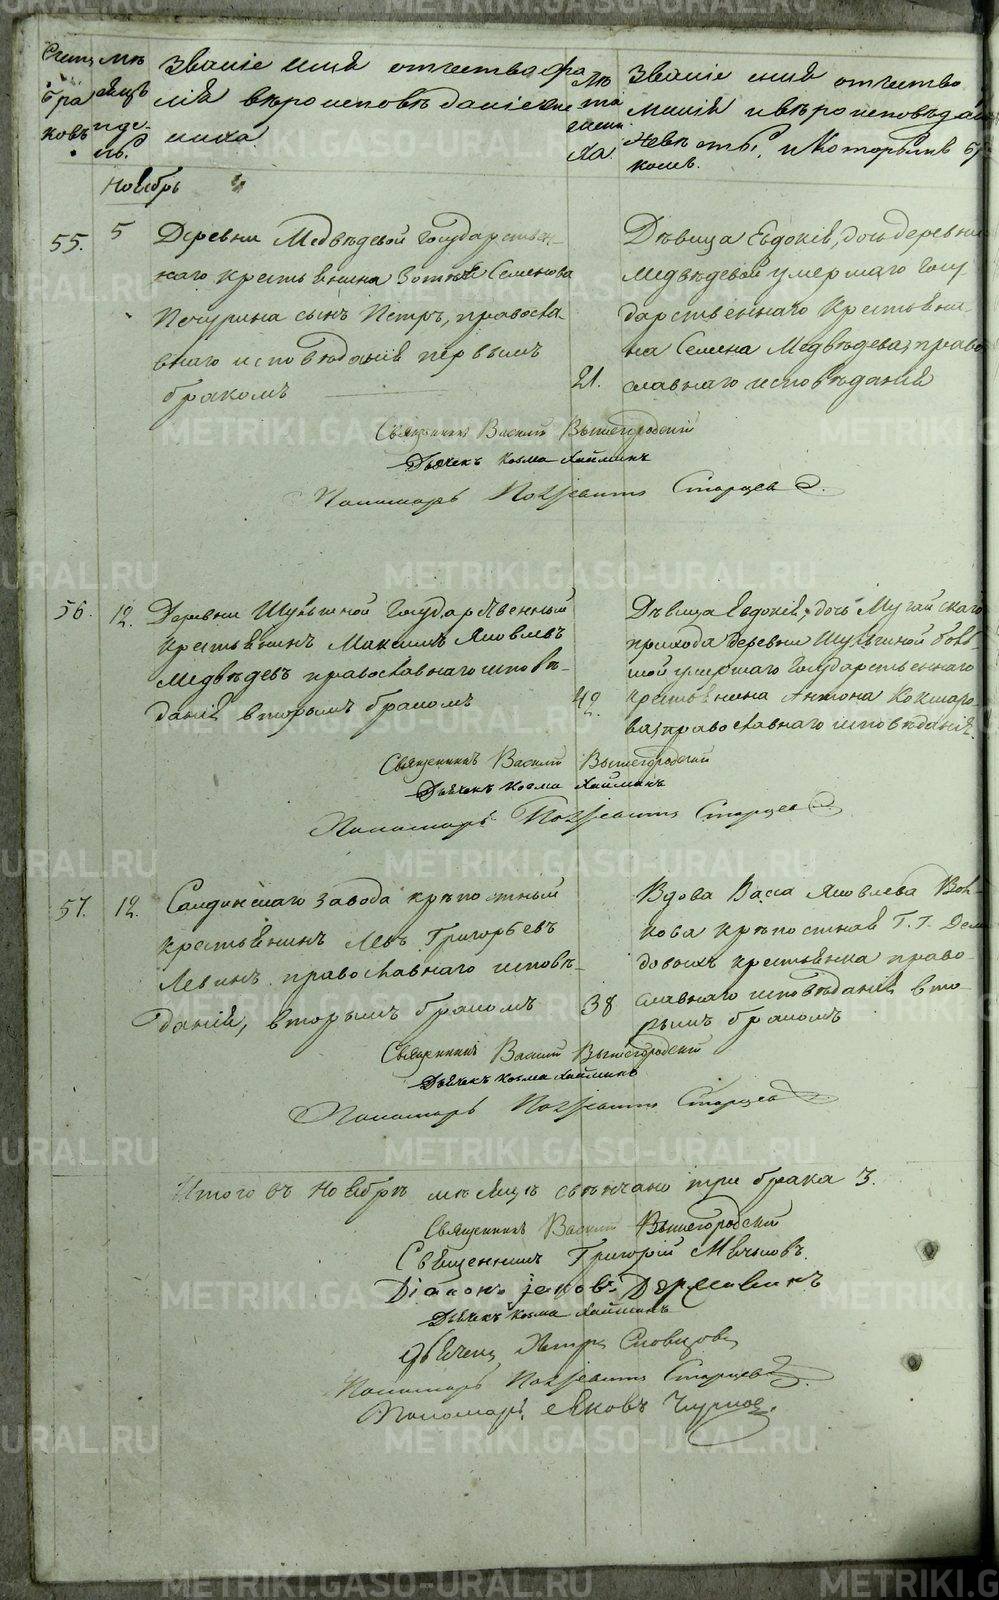 Счетъ бра ковъ.
Мѣ сяцъ и де нь.
Званіе имя отчество фа
милія вѣроисповѣданіе
ниха.
Лѣ та
жени
ха.
Званіе имя отчество
милія и вѣроисповѣдан
невѣсты, и которымъ бр
комъ.
Ноябрь
55.
5
Деревни Медвѣдевой Государствен
наго крестьянина Зотѣя Семенова
Печурина сынъ Петръ, правосла
внаго исповѣданія первымъ
бракомъ
21.
Дѣвица Евдокія, дочь деревни
Медвѣдевой умершаго Госу
дарственнаго крестьяни
на Семена Медвѣдева, право
славнаго исповѣданія
Священникъ Василій Вышегородскій
Дьячекъ Козма Хайминъ
Пономарь Поліевктъ Старцевъ
56.
12.
Деревни Шувыиной Государственный
крестьянинъ Максимъ Яковлевъ
Медвѣдевъ православнаго исповѣ-
данія вторымъ бракомъ
42.
Дѣвица Евдокія, дочь Мугайскаго
прихода деревни
умершаго Государственнаго
крестьянина Антона Кокшаро
ва православнаго исповѣданія.
Священникъ Василій Вышегородскій
Дьячекъ Козма Хайминъ
Пономарь Поліевктъ Старцевъ
57.
12.
Салдинскаго завода крѣпостный
крестьянинъ Левъ Григорьевъ
Левинъ, православнаго исповѣ-
данія, вторымъ бракомъ
38
Вдова Васса Яковлева Вол
кова крѣпостная Г. Г. Деми
довыхъ крестьянка право
славнаго исповѣданія вто-
рымъ бракомъ
Священникъ Василій Вышегородскій
Дьячекъ Козма Хайминъ
Пономарь Поліевктъ Старцевъ
Итого въ Ноябрѣ мѣсяцѣ свѣнчано три брака 3.
Священникъ Василій Вышегородскій
Священникъ Григорій
Діаконъ Іаковъ Державинъ
Дьячекъ Козма Хайминъ
Дьячекъ Петръ Словцовъ
Пономарь Поліевктъ Старцевъ
Пономарь Яковъ
METRIKI.GASO-URAL.RU